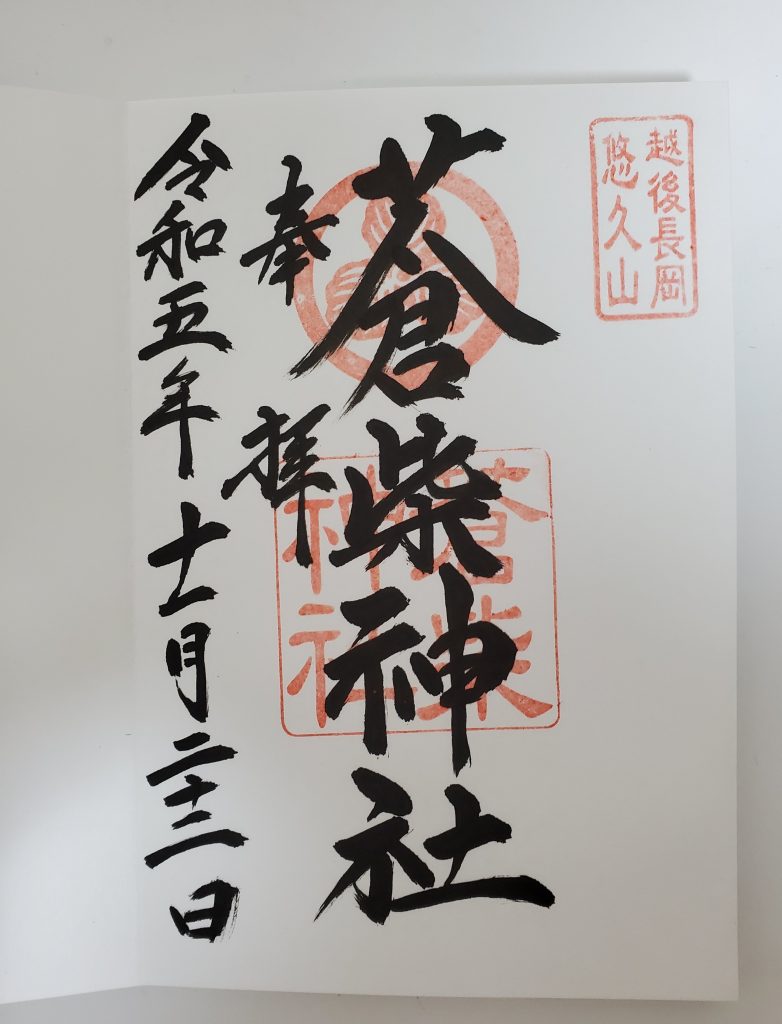 越後長岡
悠久山
蒼柴神社
蒼柴
神社
奉拝
令和五年十一月二十二日